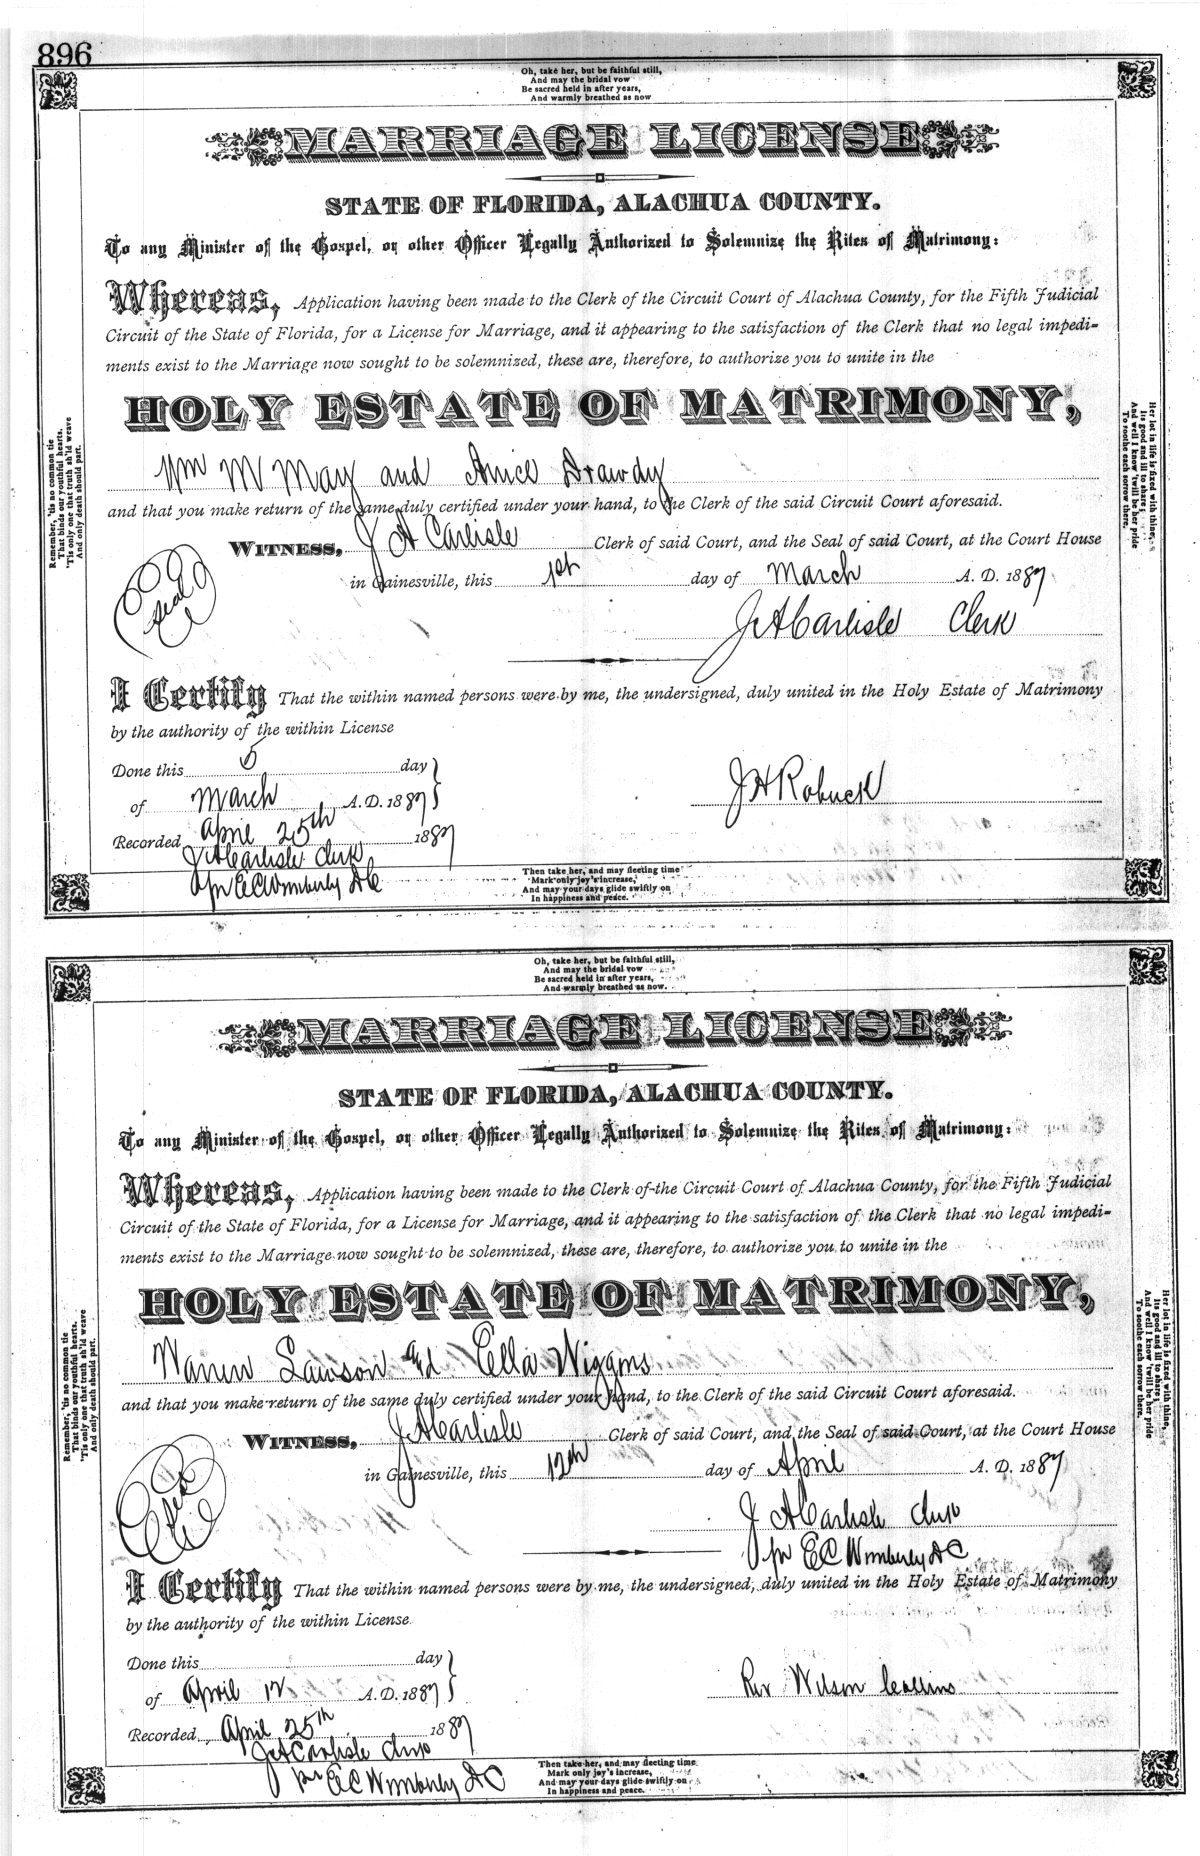 896
Oh, take her, but be faithful still,
And may the bridal vow
Be sacred held in after years,
And warmly breathed as now
MARRIAGE LICENSE
STATE OF FLORIDA, ALACHUA COUNTY.
To any Minister of the Gospel, or other Officer Legally Authorized to Solemnize the Rites of Matrimony:
Whereas, Application having been made to the Clerk of the Circuit Court of Alachua County, for the Fifth Judicial
Circuit of the State of Florida, for a License for Marriage, and it appearing to the satisfaction of the Clerk that no legal impedi-
ments exist to the Marriage now sought to be solemnized, these are, therefore, to authorize you to unite in the
HOLY ESTATE OF MATRIMONY,
Wm M May and Anice Drawdy
and that you make return of the same duly certified under your hand, to the Clerk of the said Circuit Court aforesaid.
WITNESS, J A Carlisle Clerk of said Court, and the Seal of said Court, at the Court House
in Gainesville, this 1st day of March A. D. 1887
Seal
J A Carlisle Clerk
I Certify That the within named persons were by me, the undersigned, duly united in the Holy Estate of Matrimony
by the authority of the within License
Done this 5 day
of March A. D. 1887
J H Robuck
Recorded April 25th 1887
J A Carlisle Clerk
pr E C Wimberly D C
Remember, 'tis no common tie
That binds our youthful hearts,
'Tis only one that truth sh'ld weave
And only death should part.
Her lot in life is fixed with thine,
Its good and ill to share;
And well I know 'twill be her pride
To soothe each sorrow there.
Then take her, and may fleeting time
Mark only joy's increase,
And may your days glide swiftly on
In happiness and peace.
Oh, take her, but be faithful still,
And may the bridal vow
Be sacred held in after years,
And warmly breathed as now.
MARRIAGE LICENSE
STATE OF FLORIDA, ALACHUA COUNTY.
To any Minister of the Gospel, or other Officer Legally Authorized to Solemnize the Rites of Matrimony:
Whereas, Application having been made to the Clerk of the Circuit Court of Alachua County, for the Fifth Judicial
Circuit of the State of Florida, for a License for Marriage, and it appearing to the satisfaction of the Clerk that no legal impedi-
ments exist to the Marriage now sought to be solemnized, these are, therefore, to authorize you to unite in the
HOLY ESTATE OF MATRIMONY,
Warren Lawson and Ella Wiggins
and that you make return of the same duly certified under your hand, to the Clerk of the said Circuit Court aforesaid.
WITNESS, J A Carlisle Clerk of said Court, and the Seal of said Court, at the Court House
in Gainesville, this 12th day of April A. D. 1887
J A Carlisle Clerk
pr E C Wimberly D C
I Certify That the within named persons were by me, the undersigned, duly united in the Holy Estate of Matrimony
by the authority of the within License
Done this day
of April 12 A. D. 1887
Rev Wilson Collins
Recorded April 25th 1887
J A Carlisle Clerk
pr E C Wimberly D C
Remember, 'tis no common tie
That binds our youthful hearts,
'Tis only one that truth sh'ld weave
And only death should part.
Her lot in life is fixed with thine,
Its good and ill to share
And well I know 'twill be her pride
To soothe each sorrow there.
Then take her, and may fleeting time
Mark only joy's increase,
And may your days glide swiftly on
In happiness and peace.